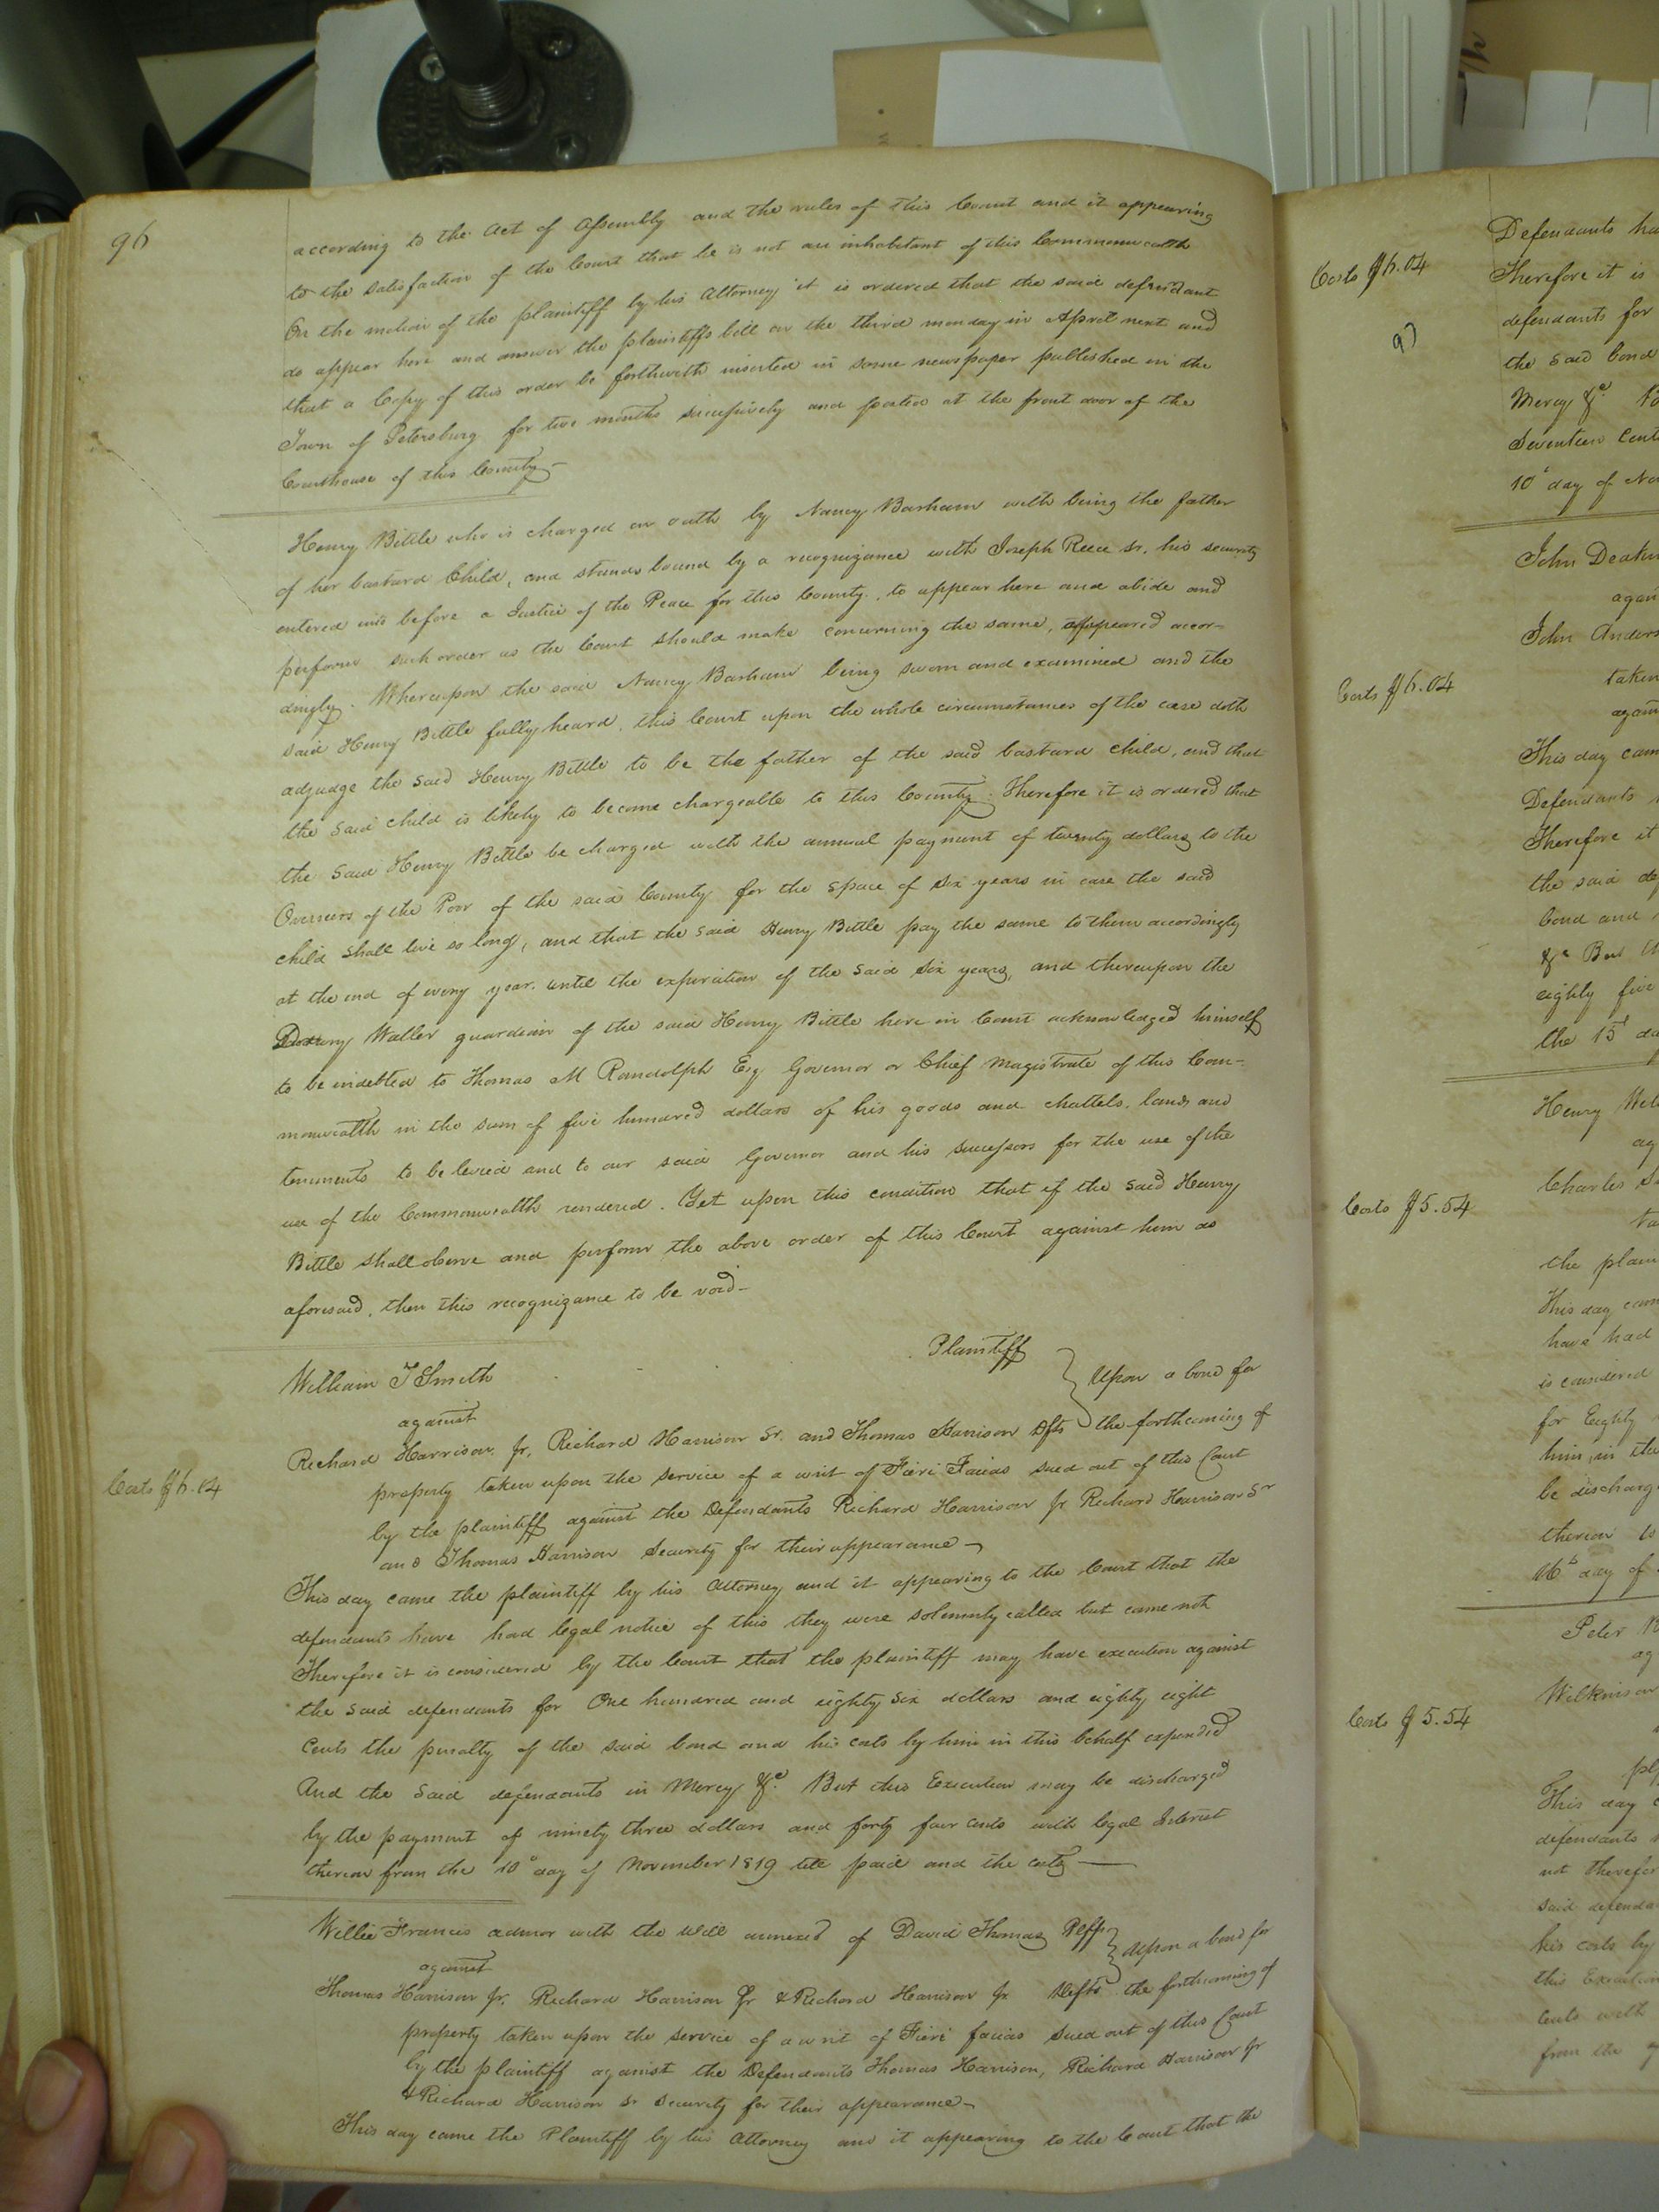 96
according to the Act of Assembly and the rules of this Court and it appearing
to the satisfaction of the Court that he is not an inhabitant of this Commonwealth
On the motion of the plaintiff by his Attorney it is ordered that the said defendant
do appear here and answer the plaintiffs bill on the third monday in April next and
that a Copy of this order be forthwith inserted in some newspaper published in the
Town of Petersburg for two months successively and posted at the front door of the
Courthouse of this County
Henry Bittle who is charged on oath by Nancy Barham with being the father
of her bastard Child, and stands bound by a recognizance with Joseph Reece Sr. his security
entered into before a Justice of the Peace for this County, to appear here and abide and
perform such order as the Court should make concerning the same, appeared accor-
dingly. Whereupon the said Nancy Barham being sworn and examined and the
said Henry Bittle fully heard, this Court upon the whole circumstances of the case doth
adjudge the said Henry Bittle to be the father of the said bastard child, and that
the said child is likely to become chargeable to this County. Therefore it is ordered that
the said Henry Bittle be charged with the annual payment of twenty dollars to the
Overseers of the Poor of the said County for the space of six years in case the said
child shall live so long, and that the said Henry Bittle pay the same to them accordingly
at the end of every year until the expiration of the said six years, and thereupon the
Waller guardian of the said Henry Bittle here in Court acknowledged himself
to be indebted to Thomas M Randolph Esq Governor or Chief Magistrate of this Com-
monwealth in the sum of five hundred dollars of his goods and chattels, lands and
tenements to be levied and to our said Governor and his successors for the use of the
use of the Commonwealth rendered. Yet upon this condition that if the said Henry
Bittle shall observe and perform the above order of this Court against him as
aforesaid, then this recognizance to be void-
William T Smith Plaintiff
against } Upon a bond for
Richard Harrison, Jr, Richard Harrison Sr. and Thomas Harrison Dfts the forthcoming of
Costs $6.04
property taken upon the service of a writ of Fieri Facias sued out of this Court
by the plaintiff against the Defendants Richard Harrison Jr Richard Harrison Sr
and Thomas Harrison security for their appearance-
This day came the plaintiff by his Attorney and it appearing to the Court that the
defendants have had legal notice of this they were solemnly called but came not
Therefore it is considered by the Court that the plaintiff may have execution against
the said defendants for One hundred and eighty six dollars and eighty eight
Cents the penalty of the said bond and his costs by him in this behalf expended
And the said defendants in Mercy &c. But this Execution may be discharged
by the payment of ninety three dollars and forty four cents with legal Interest
thereon from the 10th day of November 1819 till paid and the costs
Willie Francis admor with the Will annexed of David Thomas Plff
against } Upon a bond for
Thomas Harrison Jr. Richard Harrison Jr & Richard Harrison Jr Defts the forthcoming of
property taken upon the service of a writ of Fieri facias sued out of this Court
by the plaintiff against the Defendants Thomas Harrison, Richard Harrison Jr
& Richard Harrison Sr security for their appearance-
This day came the Plaintiff by his Attorney and it appearing to the Court that the
97
Defendants
Costs $6.04
Therefore it is
defendants for
the said bond
Mercy &c
Seventeen Cents
10th day of
John
John
Costs $6.04
taken
This day came
Defendants
Therefore it
the said
bond and
&c But
eighty five
the 15th
Henry
Charles
Costs $5.54
the
This day came
have had
is considered
for Eighty
him, in
be
thereon
16th day of
Peter
Wilkinson
Costs $5.54
This day
defendants
not
said
his costs by
this Execution
Cents with
from the